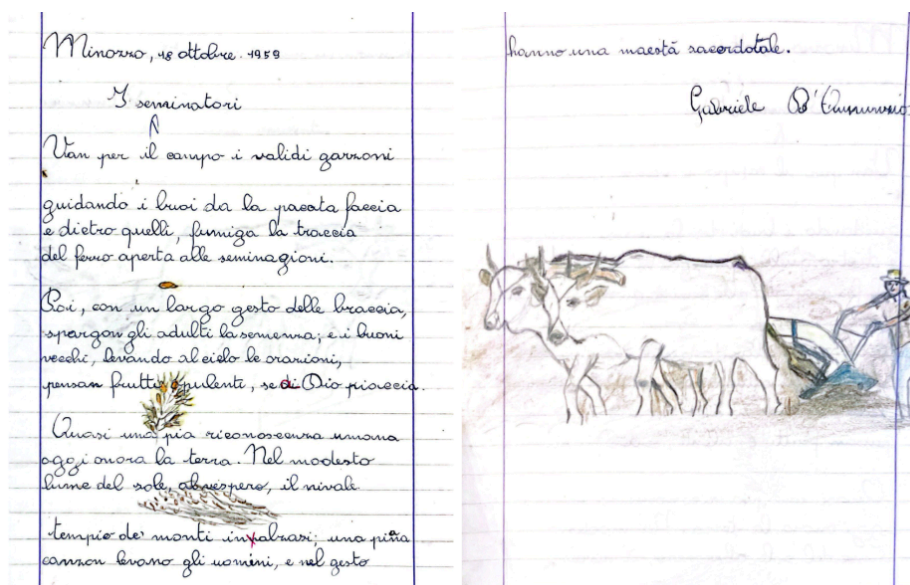 Minozzo, 18 ottobre. 1959
I seminatori
Van per il campo i validi garzoni
guidando i buoi da la pacata faccia
e dietro quelli, fumiga la traccia
del ferro aperta alle seminagioni.
Poi, con un largo gesto delle braccia,
spargon gli adulti la semenza; e i buoni
vecchi, levando al cielo le orazioni,
pensan frutti opulenti, se di Dio piaccia.
Quasi una pia riconoscenza umana
oggi onora la terra. Nel modesto
lume del sole, al vespero, il nivale
tempio de' monti inalbrasi; una piana
canzon levano gli uomini, e nel gesto
hanno una maestà sacerdotale.
Gabriele D'Annunzio.